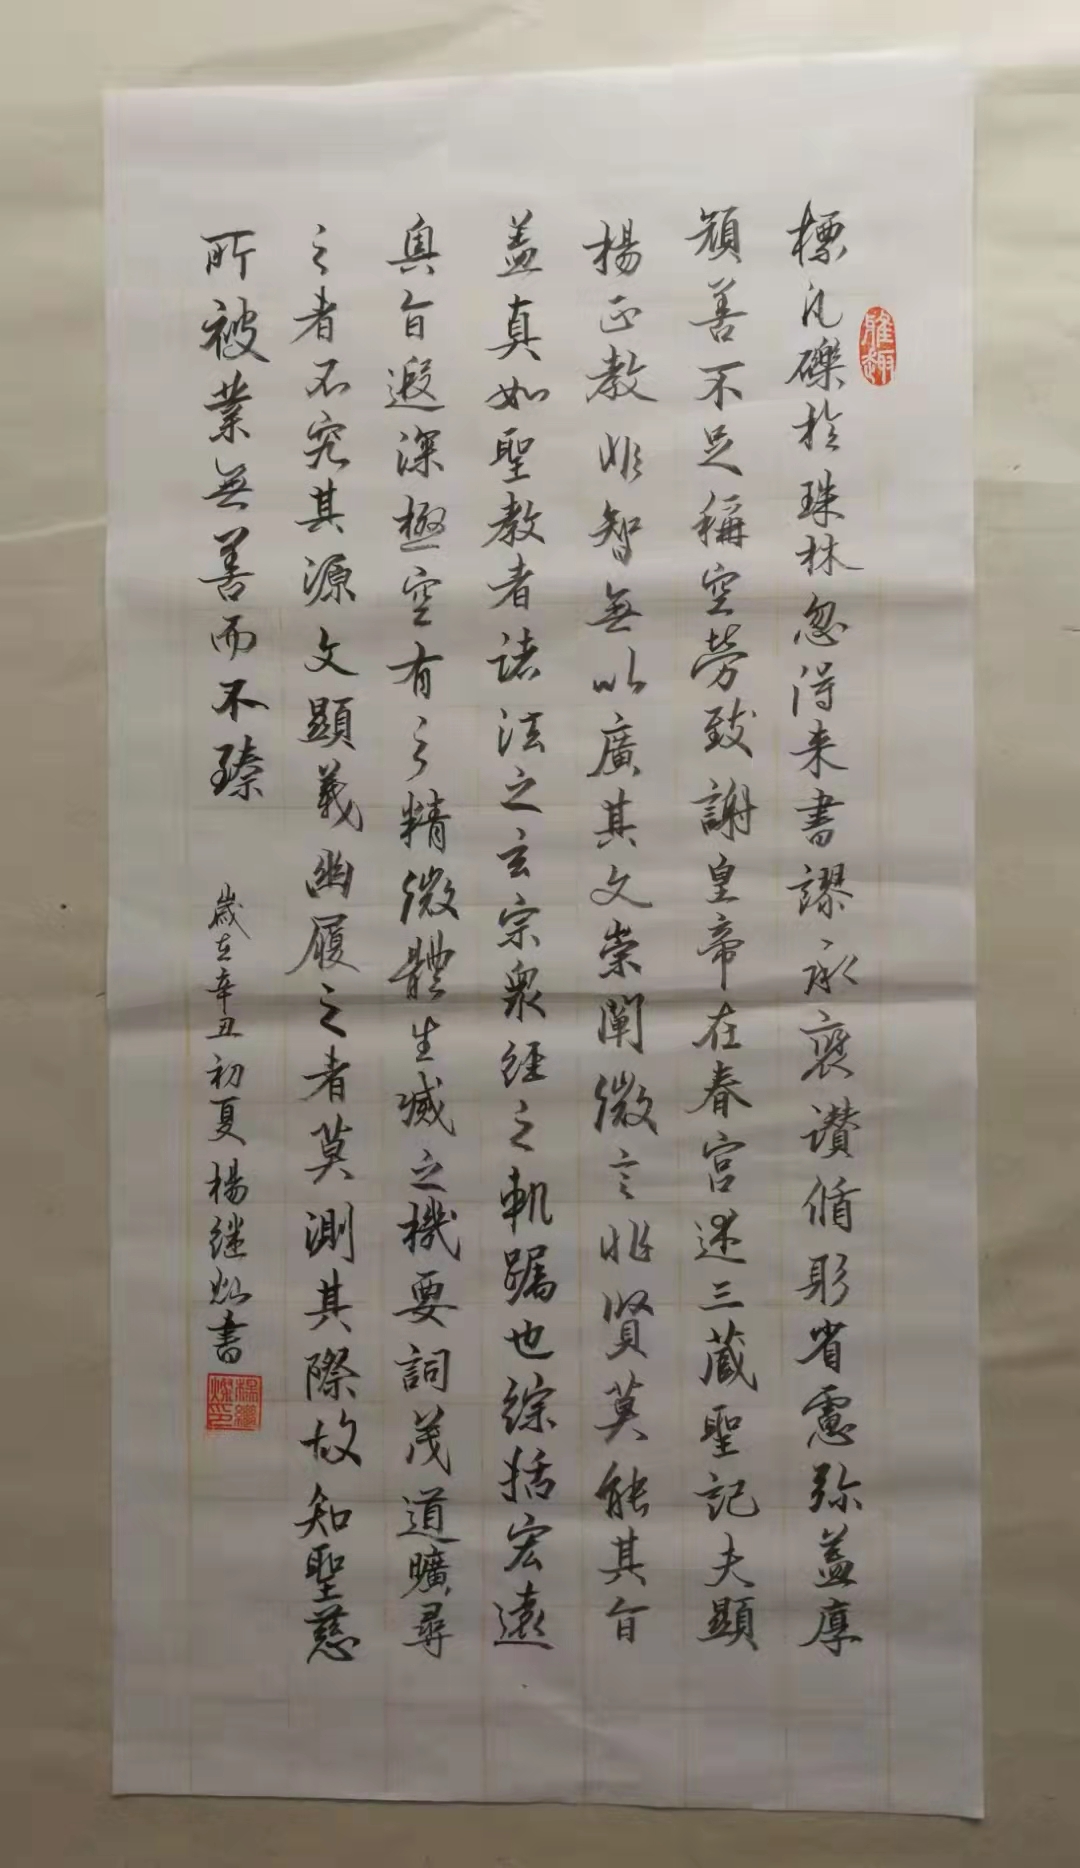 雅趣
標瓦礫於珠林忽得来書謬承襃讚循躬省慮弥益厚
顔善不足稱空勞致謝皇帝在春宮述三藏聖記夫顯
楊正教非智無以廣其文崇闡微言非賢莫能其旨
盖真如聖教者諸法之玄宗衆經之軌躅也綜括宏遠
奥旨遐深極空有之精微體生滅之機要詞茂道曠尋
之者不究其源文顯義幽履之者莫測其際故知聖慈
所被業無善而不臻
歲在辛丑初夏楊继灿書
楊繼燦印